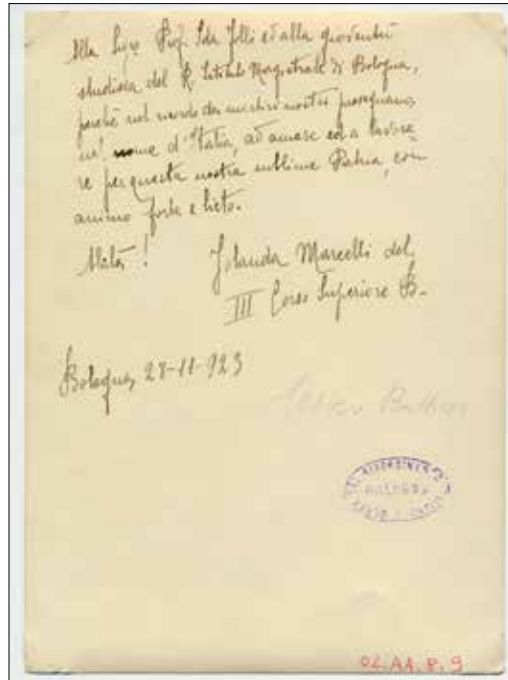 Alla Sig.ra Prof. Ida Folli ed alla gioventù
studiosa del R. Istituto Magistrale di Bologna,
perché nel ricordo dei martiri nostri proseguano
nel nome d'Italia, ad amare ed a lavora
re per questa nostra sublime Patria, con
animo forte e lieto.
Alalà!
Jolanda Marcelli del
III Corso Superiore B.
Bologna, 28-11-923
BOLOGNA
02.AA.8.9